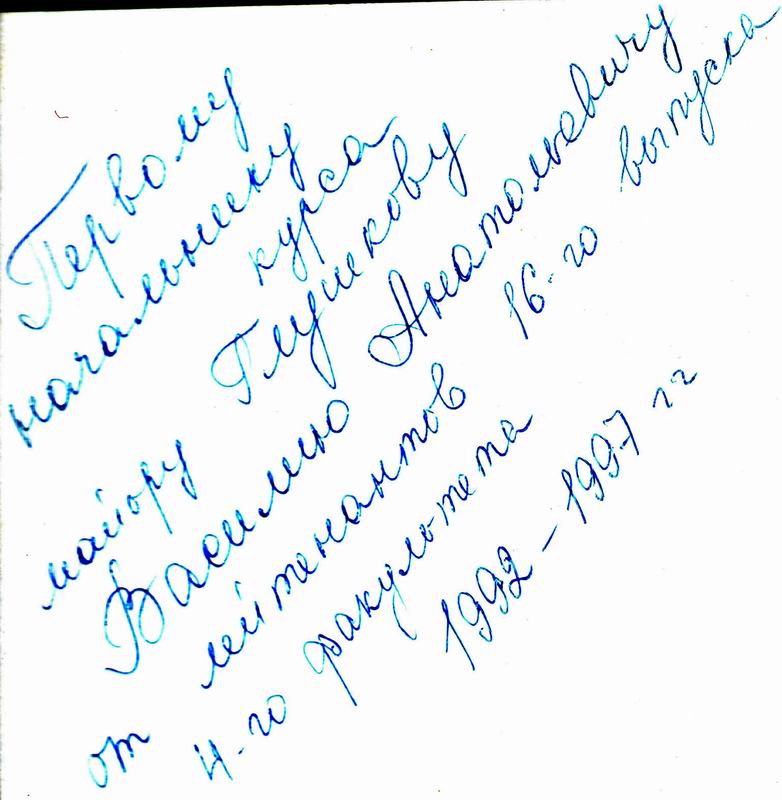 Первому
начальнику
курса
майору Глушкову
Василию Анатольевичу
от лейтенантов 16-го выпуска
4-го факультета
1992 – 1997 гг